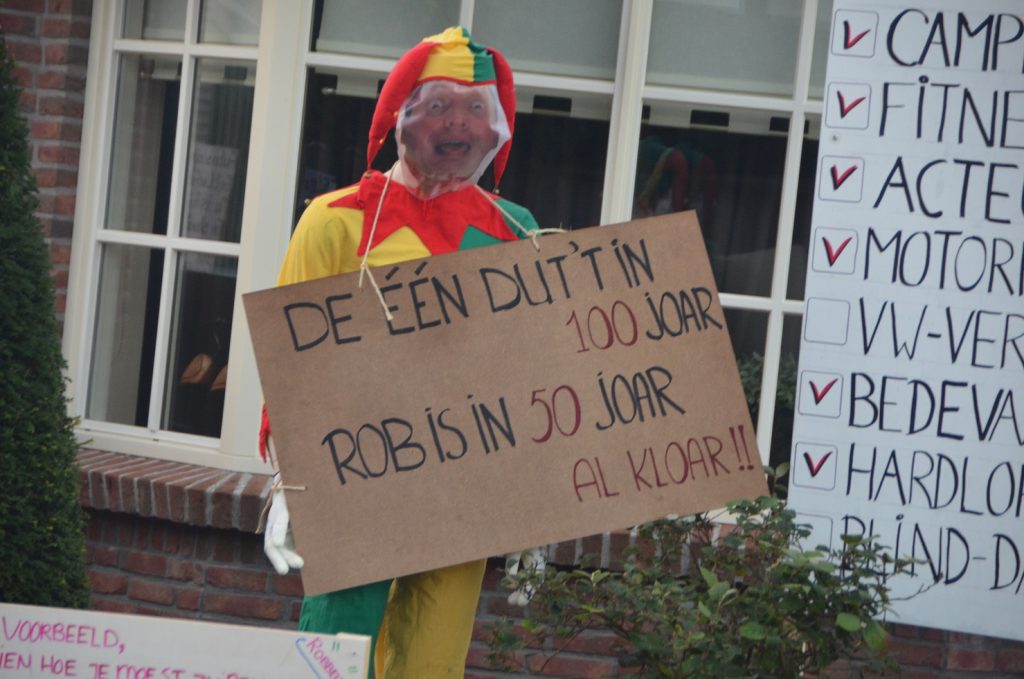 DE ÉÉN DUT'T IN
100 JOAR
ROB IS IN 50 JOAR
AL KLOAR!!
CAMP
FITNE
ACTE
MOTORR
VW-VER
BEDEVA
HARDLO
BLIND-DA
VOORBEELD,
IEN HOE JE MOEST